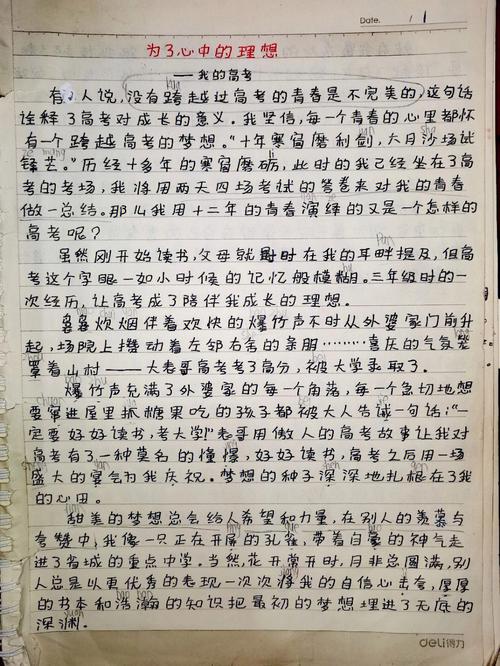 Date. / 1
为了心中的理想
——我的高考
有人说,没有跨越过高考的青春是不完美的,这句话
诠释了高考对成长的意义。我坚信,每一个青春的心里都怀
有一个跨越高考的梦想。“十年寒窗磨利剑,六月沙场试
锋芒。”历经十多年的寒窗磨砺,此时的我已经坐在了高
考的考场,我将用两天四场考试的答卷来对我的青春
做一总结。那么我用十二年的青春演绎的又是一个怎样的
高考呢?
虽然刚开始读书,父母就时时在我的耳畔提及,但高
考这个字眼一如小时候的记忆般模糊。三年级时的一
次经历,让高考成了陪伴我成长的理想。
袅袅炊烟伴着欢快的爆竹声不时从外婆家门前升
起,场院上攒动着左邻右舍的亲朋………喜庆的气氛笼
罩着山村——大老哥高考考了高分,被大学录取了。
爆竹声充满了外婆家的每一个角落,每一个急切地想
要窜进屋里抓糖果吃的孩子都被大人告诫一句话:“一
定要好好读书,考大学!”老哥用傲人的高考故事让我对
高考有了一种莫名的憧憬,好好读书,高考之后用一场
盛大的宴会为我庆祝。梦想的种子深深地扎根在了我
的心田。
甜美的梦想总会给人希望和力量,在别人的羡慕与
夸赞中,我像一只正在开屏的孔雀,带着自豪的神气走
进了省城的重点中学。当然,花开常开时,月非总圆满,别
人总是以更优秀的表现一次次将我的自信心击夸,厚厚
的书本和浩瀚的知识把最初的梦想埋进了无底的
深渊。
deli得力